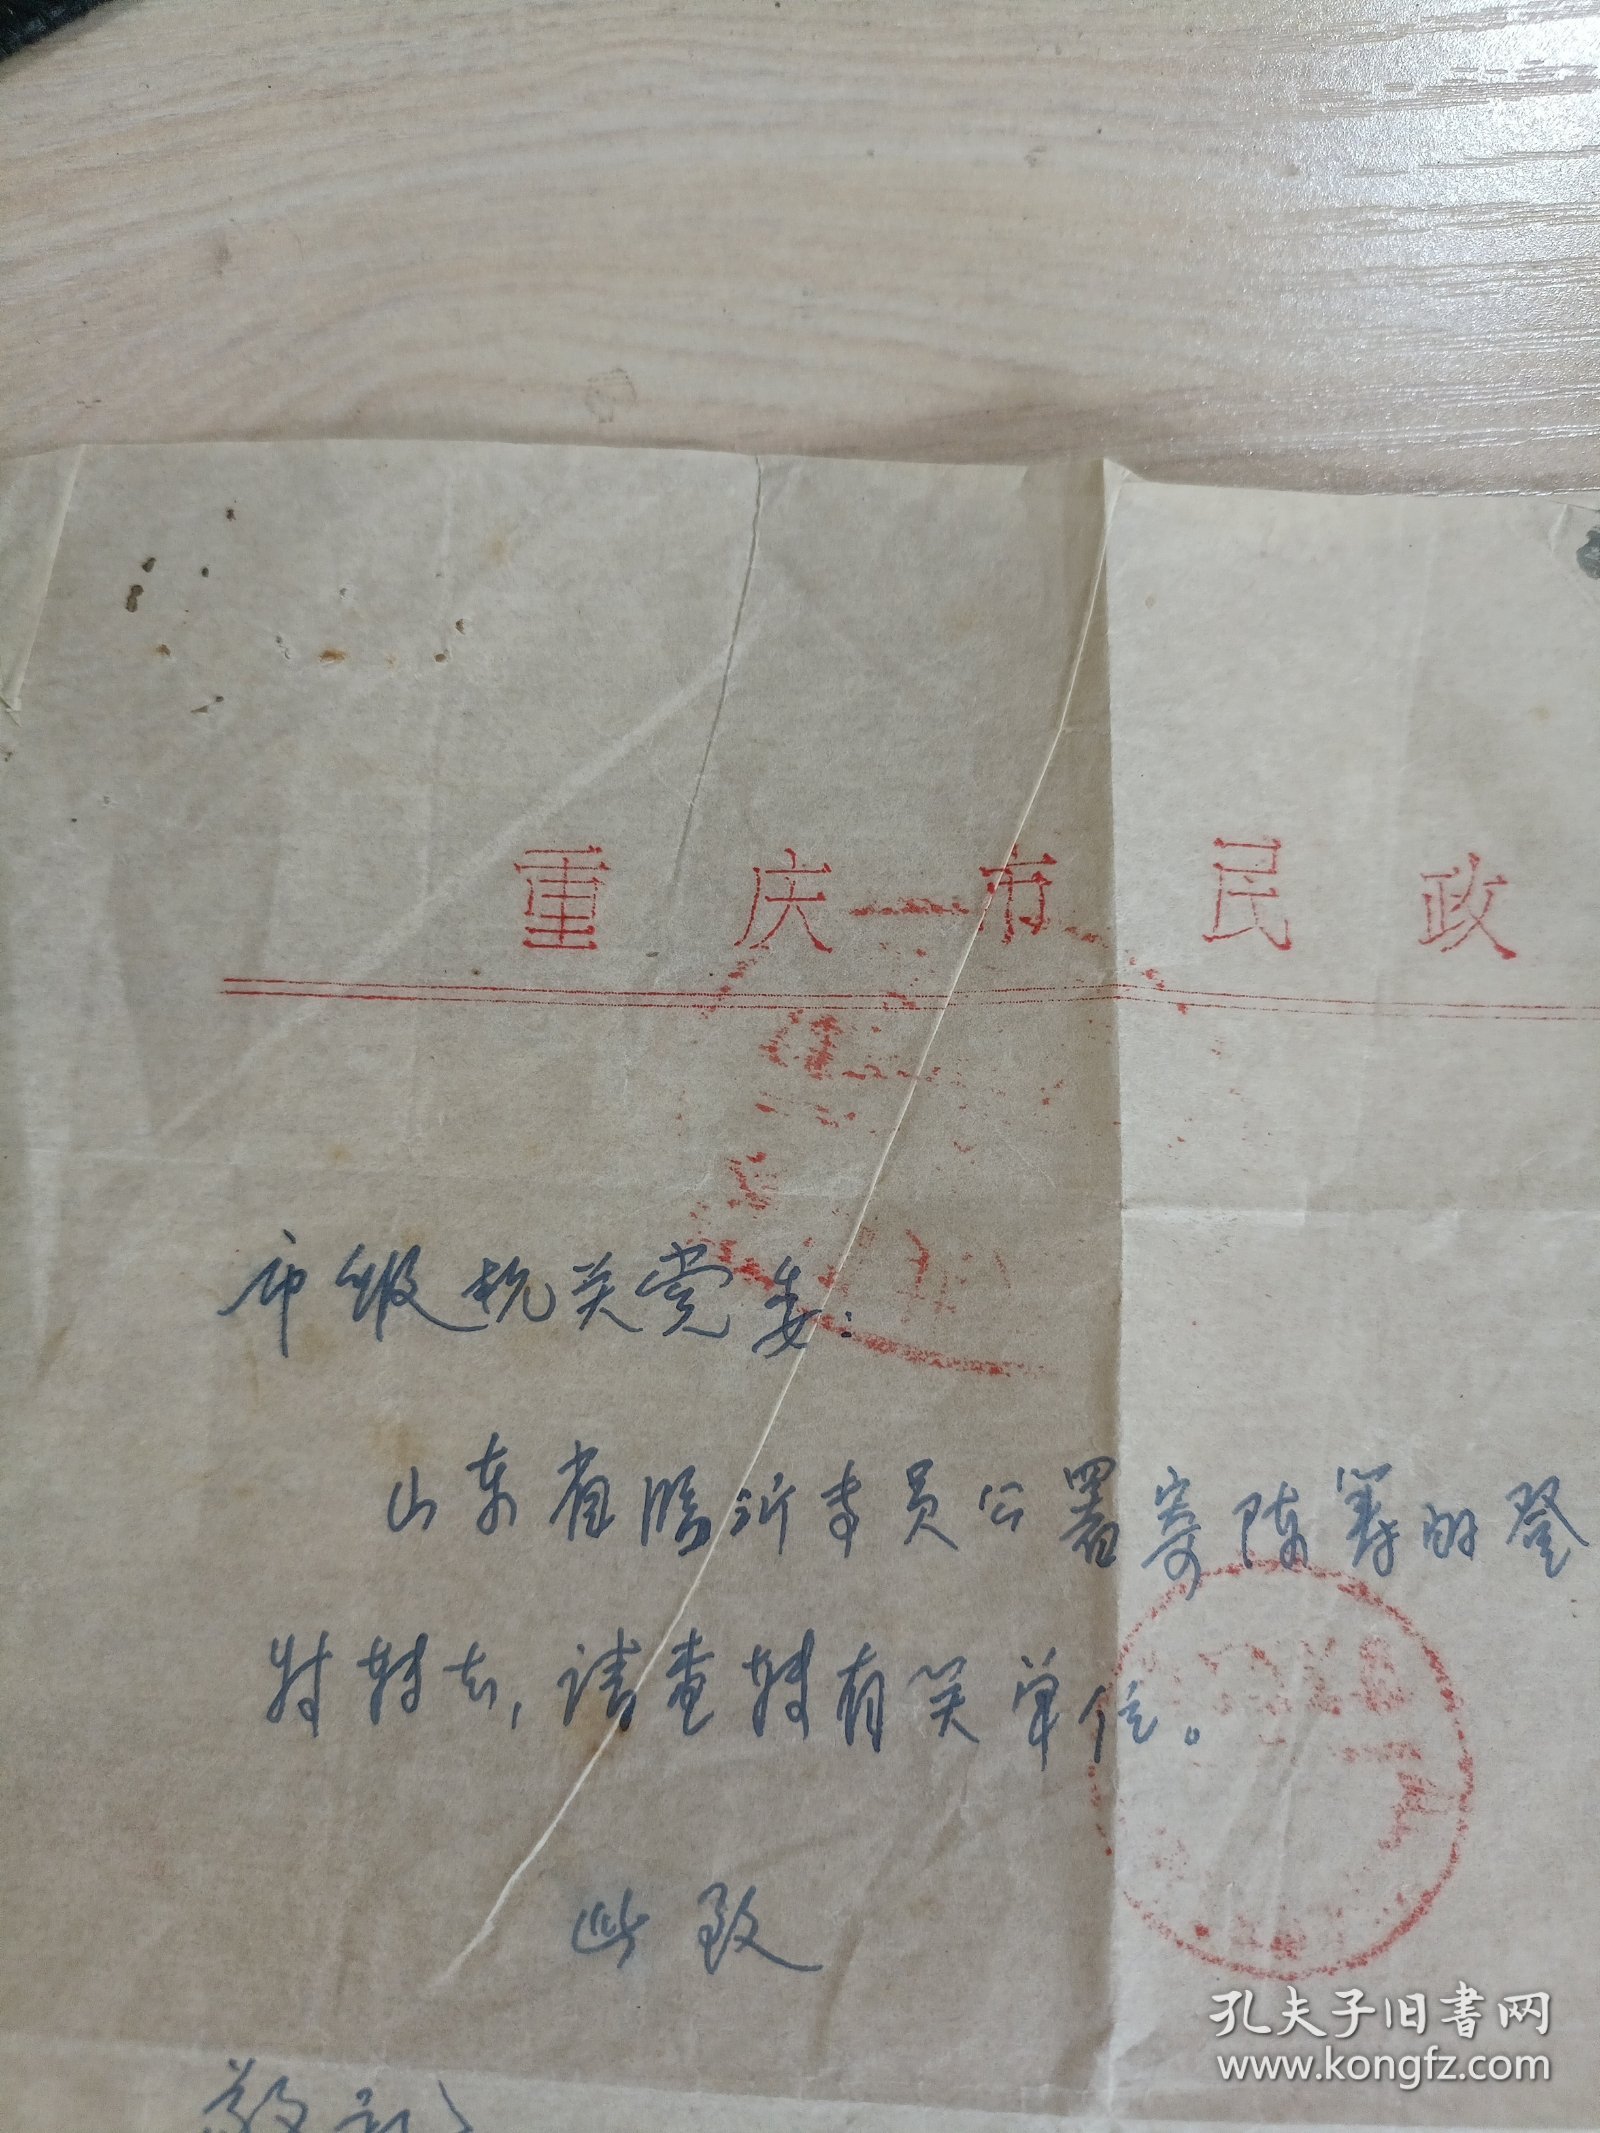 重庆市民政
市级机关党委：
山东省临沂专员公署寄陈寿的登
特转去，请查转有关单位。
此致
敬礼
孔夫子旧书网
www.kongfz.com